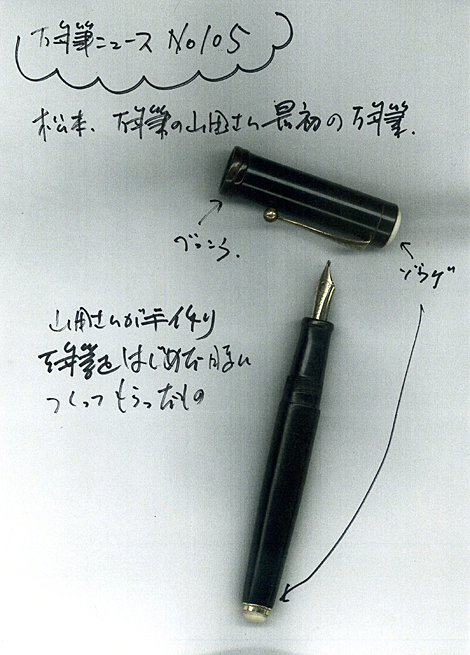 万年筆ニュース No105
松本、万年筆の山田さん最初の万年筆.
ゾウゲ
山田さんが手作り
万年筆をはじめた頃に
つくってもらったもの